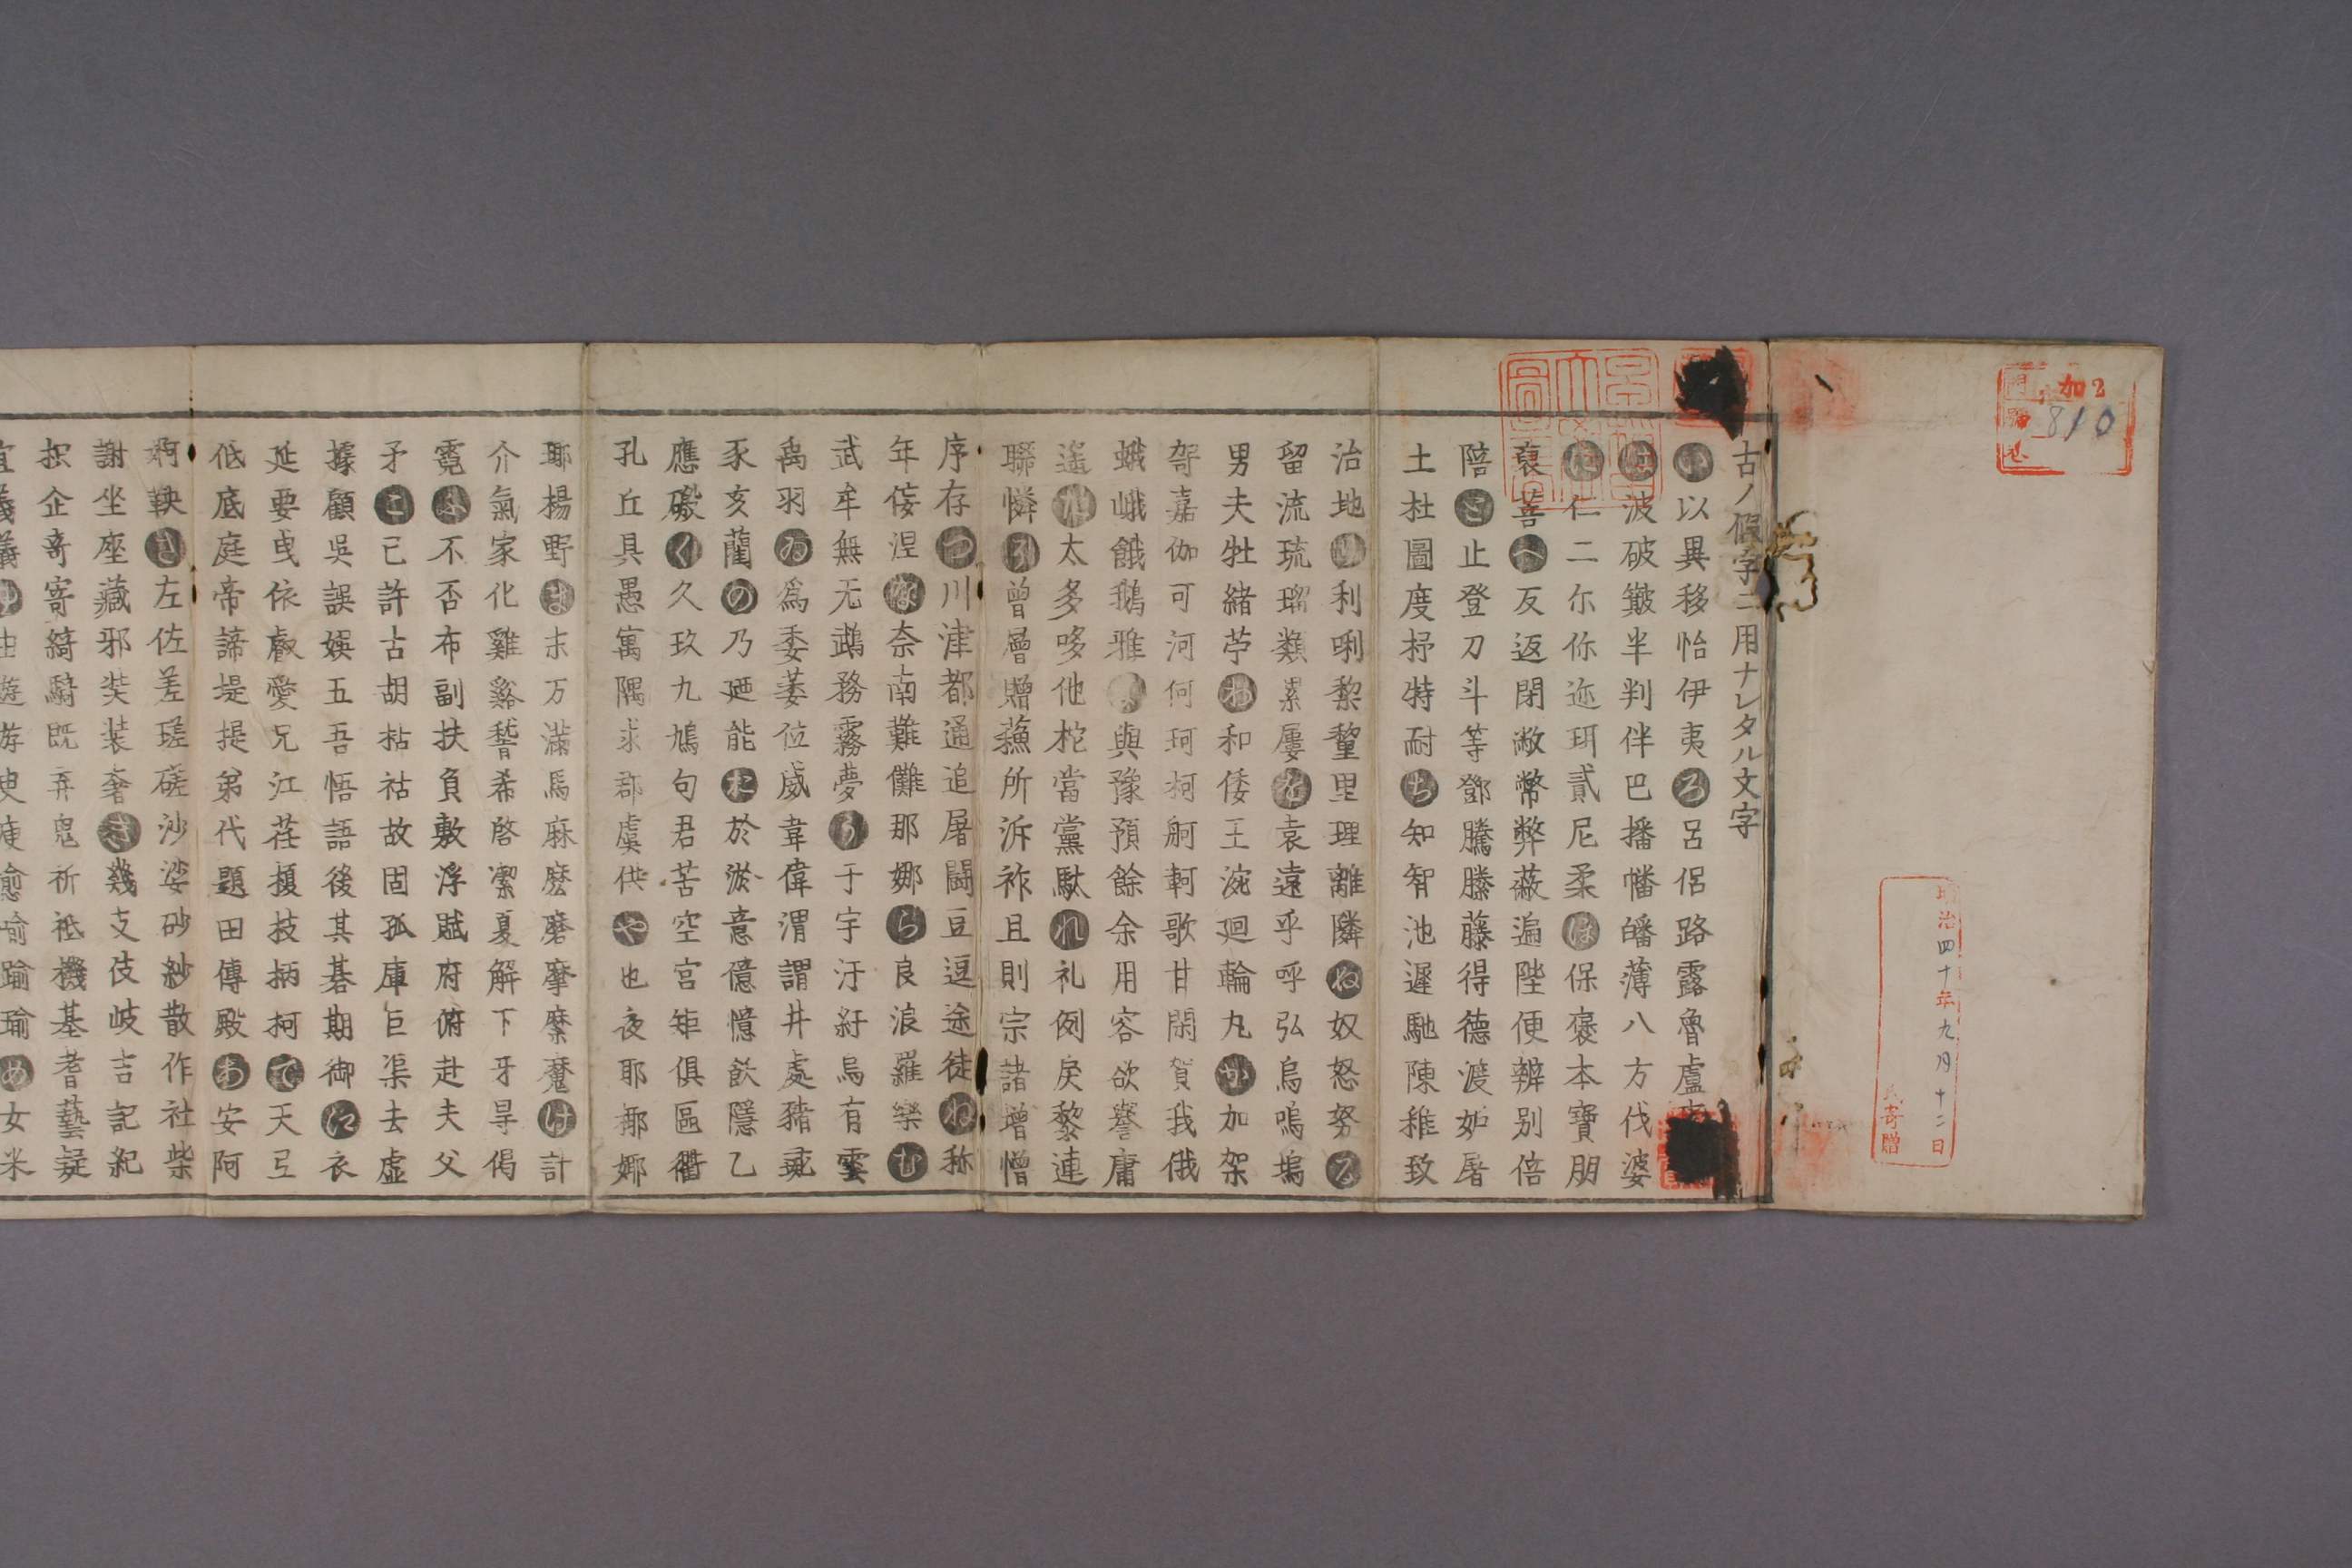 加2
810
明治四十年九月十二日
氏寄贈
古ノ假字ニ用ナレタル文字
い以異移怡伊夷ろ呂侶路露魯盧
は波破簸半判伴巴播幡皤薄八方伐婆
に仁二尓你迩珥貳尼柔ほ保褒本寶朋
裒菩へ反返閉敝幣弊蔽遍陛便辨別倍
陪と止登刀斗等鄧騰滕藤得德渡妬屠
土杜圖度杼特耐ち知智池遲馳陳稚致
治地り利唎黎釐里理離隣ぬ奴怒努る
留流琉瑠類累屢を袁遠乎呼弘烏嗚塢
男夫牡緒苧わ和倭王涴廻輪丸か加架
哿嘉伽可河何珂柯舸軻歌甘閑賀我俄
蛾峨餓鵝雅よ與豫預餘余用容欲譽庸
遙た太多哆他柁當黨馱れ礼例戾黎連
聯憐そ曾層贈蘓所泝祚且則宗諸增憎
序存つ川津都通追屠鬪豆逗途徒ね祢
年倿涅な奈南難儺那娜ら良浪羅樂む
武牟無无鵡務霧夢う于宇汙紆烏有雲
禹羽ゐ爲委萎位威韋偉渭謂井處豬
豕亥藺の乃廼能お於淤意億憶飫隱乙
應磤く久玖九鳩句君苦空宮矩俱區
孔丘具愚寓隅求郡虞供や也夜耶
楊野ま末万滿馬麻麼磨摩魔け計
介氣家化雞谿稽希啓潔夏解下牙昇偈
霓ふ不否布副扶負敷浮賦府俯赴夫父
矛こ己許古胡枯祜故固孤庫巨渠去虛
據顧吳誤娛五吾悟語後其碁期御江衣
延要曳依叡愛兄江荏榎枝柄柯て天
低底庭帝諦堤提弟代題田傳殿あ安阿
婀鞅さ左佐差瑳磋沙娑砂紗散作社柴
謝坐座藏邪奘裝奢き幾支伎岐吉記紀
企奇寄綺騎既弃鬼祈祇機基耆藝疑
め女米